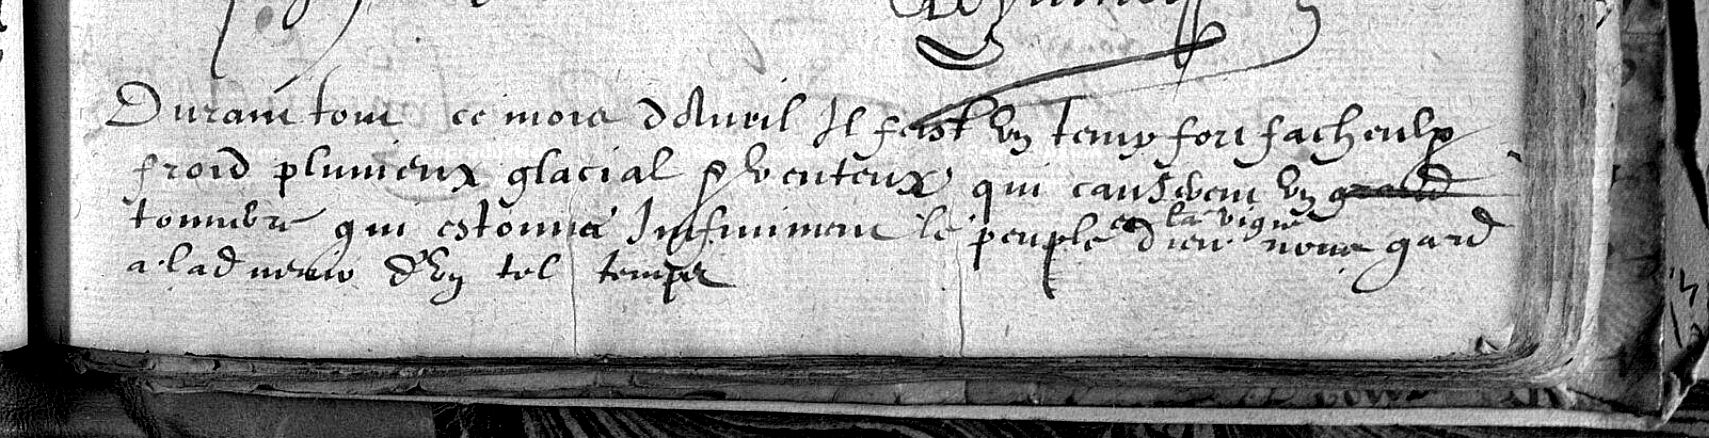 Durant tout ce mois d Auril Il feist un temps fort facheulx
froid pluuieux glacial & venteux qui
tonnerre qui estonna Infiniment le peuple et la vigne dieu nous gard
a laduenir d'un tel temps